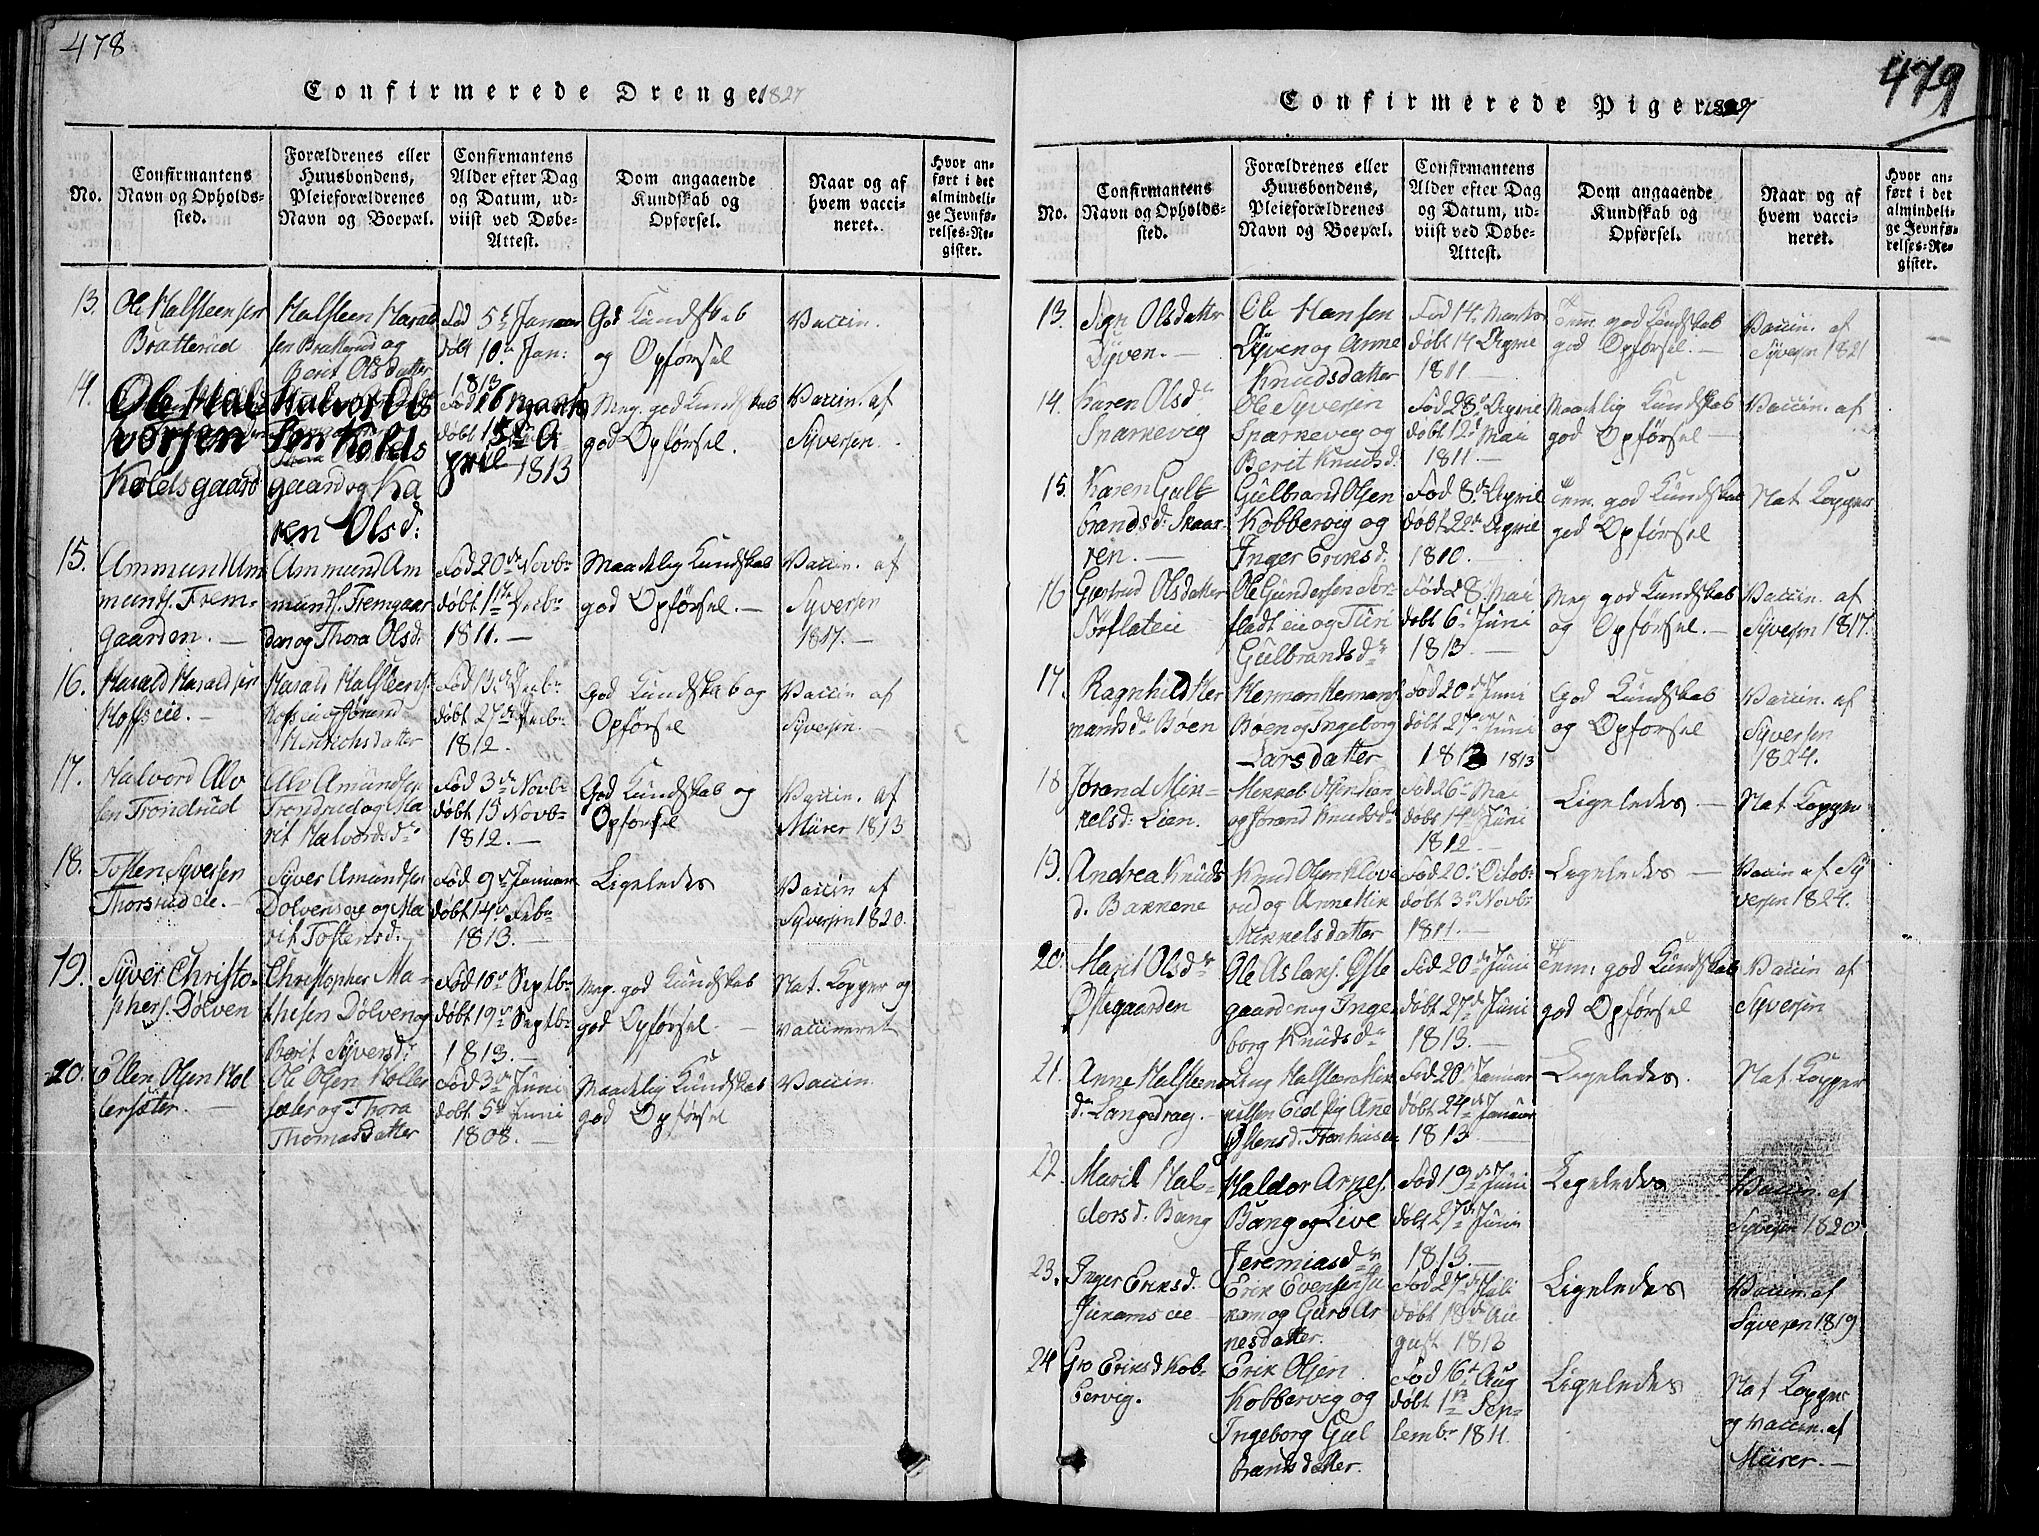 478
Confirmerede Drenge 1827
No.
Confirmantens
Navn og Opholds-
sted.
Forældrenes eller
Huusbondens,
Pleieforældrenes
Navn og Boepæl.
Confirmantens
Alder efter Dag
og Datum, ud-
viist ved Døbe-
Attest.
Dom angaaende
Kundskab og
Opførsel.
Naar og af
hvem vacci-
neret.
Hvor an-
ført i det
almindeli-
ge Jevnfø-
relses-Re-
gister.
13.
Ole Halsteensen
Bratterud
Halsteen Harald
sen Bratterud og
Berit Olsdatter
Fød 5te Januar
døbt 10de Jan:
1813
God Kundskab
og Opførsel
Vaccin.
14.
Ole Hal
vorsen
Koldsgaard
Halvor Ol
sen Kolds
gaard og Ka
ren Olsd:
Fød 16 Marts
døbt 15de A
pril 1813
Meg. god Kundskab
god Opførsel.
Vaccin. af
Syversen.
15.
Ammund Am
munds. Trem-
gaarden. —
Ammund Am
munds. Tremgaar
den og Thora Olsd:
Fød 20de Novbr
døbt 1ste Decbr
1811. —
Maadelig Kundskab
god Opførsel. —
Vaccin. af
Syversen
1817. —
16.
Harald Haraldsen
Hoffseie. —
Harald Halsteens.
Hofseie og Jørand
Henrichsdatter
Fød 13de Decbr
døbt 27de Decbr
1812.
God Kundskab og
Opførsel
Vaccin af
Syversen.
17.
Halvord Alv
sen Trondrud
Alv Amundsen
Trondrud og Ma
rit Halvordsdr
Fød 3de Novbr
døbt 15 Novbr
1812. —
God Kundskab og
Opførsel
Vaccin. af
Mürer 1813
18.
Tosten Syversen
Thorsrudeie. —
Syver Amundsen
Dølvenseie og Ma
rit Tostensd:
Fød 9de Januar
døbt 14de Febr
1813. —
Ligeledes
Vaccin af
Syversen 1820.
19.
Syver Christo-
phers. Dølven
Christopher Ma-
thesen Dølven og
Berit Syversd:
Fød 10de Septbr
døbt 19de Septbr
1813. —
Meg. god Kundskab
god Opførsel. —
Nat. Kopper og
vaccineret
20.
Ellen Olsen Hol
lersæter. —
Ole Olsen Holler
sæter og Thora
Thomasdatter
Fød 3de Juni
døbt 5te Juni
1808. —
Maadelig Kundskab
god Opførsel
Vaccin.
479
Confirmerede Piger 1827
No.
Confirmantens
Navn og Opholds-
sted.
Forældrenes eller
Huusbondens,
Pleieforældrenes
Navn og Boepæl.
Confirmantens
Alder efter Dag
og Datum, ud-
viist ved Døbe-
Attest.
Dom angaaende
Kundskab og
Opførsel.
Naar og af
hvem vacci-
neret.
Hvor an-
ført i det
almindeli-
ge Jevnfø-
relses-Re-
gister.
13.
Sigri Olsdatter
Dyven. —
Ole Hansen
Dyven og Anne
Knudsdatter
Fød 14de Marts
døbt 14 April
1811 —
Tem. god Kundskab
god Opførsel. —
Vaccin. af
Syversen 1821
14.
Karen Olsdr
Sparkevig
Ole Syversen
Sparkevig og
Berit Knudsd:
Fød 28de April
døbt 12te Mai
1811. —
Maadelig Kundskab
god Opførsel —
Vaccin. af
15.
Karen Gul
brandsd: Skaar
ren. —
Gulbrand Olsen
Kobbervig og
Inger Eriksd:
Fød 8de April
døbt 22de April
1810. —
Tem. god Kundskab
god Opførsel
Nat Kopper
16
Gjertrud Olsdatter
Sørflateie
Ole Gundersen Sør
fladteie og Turi
Gulbrandsdr
Fød 28de Mai
døbt 6te Juni
1813. —
Meg god Kundskab
og Opførsel. —
Vaccin. af
Syversen 1817.
17.
Ragnhild Her
mandsdr Boen
Herman Hermans.
Boen og Ingeborg
Larsdatter
Fød 20de Juni
døbt 27de Juni
1813 1813
God Kundskab
og Opførsel
Vaccin. af
Syversen
1824.
18
Jørand Mik-
kelsd: Lien.
Mekkel Olsen Lien
og Jørand Knudsdr
Fød 26de Mai
døbt 14de Juni
1812 —
Ligeledes. —
Nat. Kopper
19.
Andrea Knuds
d. Bakkene
Knud Olsen Klove
rud og Anne Kir
Mikkelsdatter
Fød 20de Octob.
døbt 3de Novbr
1811. —
Ligeledes —
Vaccin af Sy
versen 1824.
20.
Marit Olsdr
Østegaarden
Ole Aslaks. Øste
gaarden og Inge
borg Knudsdr
Fød 20de Juni
døbt 27de Juni
1813. —
Tem: god Kundskab
god Opførsel
Vaccin af
Syversen
21.
Anne Halsteens
dr Langedrag.
Halsteen
Eie og Anne
Østensd.
Fød 20de Januar
døbt 24de Januar
1813 —
Ligeledes.
Nat. Kopper
22.
Marit Hal-
dorsd. Bang
Haldor Arnes.
Bang og Live
Jeremiasdr
Fød 19de Juni
døbt 27de Juni
1813. —
Ligeledes
Vaccin. af
Syversen 1820
23.
Inger Eriksd.
Jukamseie
Erik Evensen Ju
kam og Guro Ar
nesdatter.
Fød 27de Juli
døbt 18de Au
gust 1813
Ligeledes
Vaccin. af
Syversen 1819
24
Gro Eriksd Kob-
bervig.
Erik Olsen
Kobbervig og
Ingeborg Gul
brandsdatter.
Fød 6te Aug
døbt 1ste Sep-
tembr 1811.
Ligeledes
Nat Kopper
og vaccin. af
Mürer. —